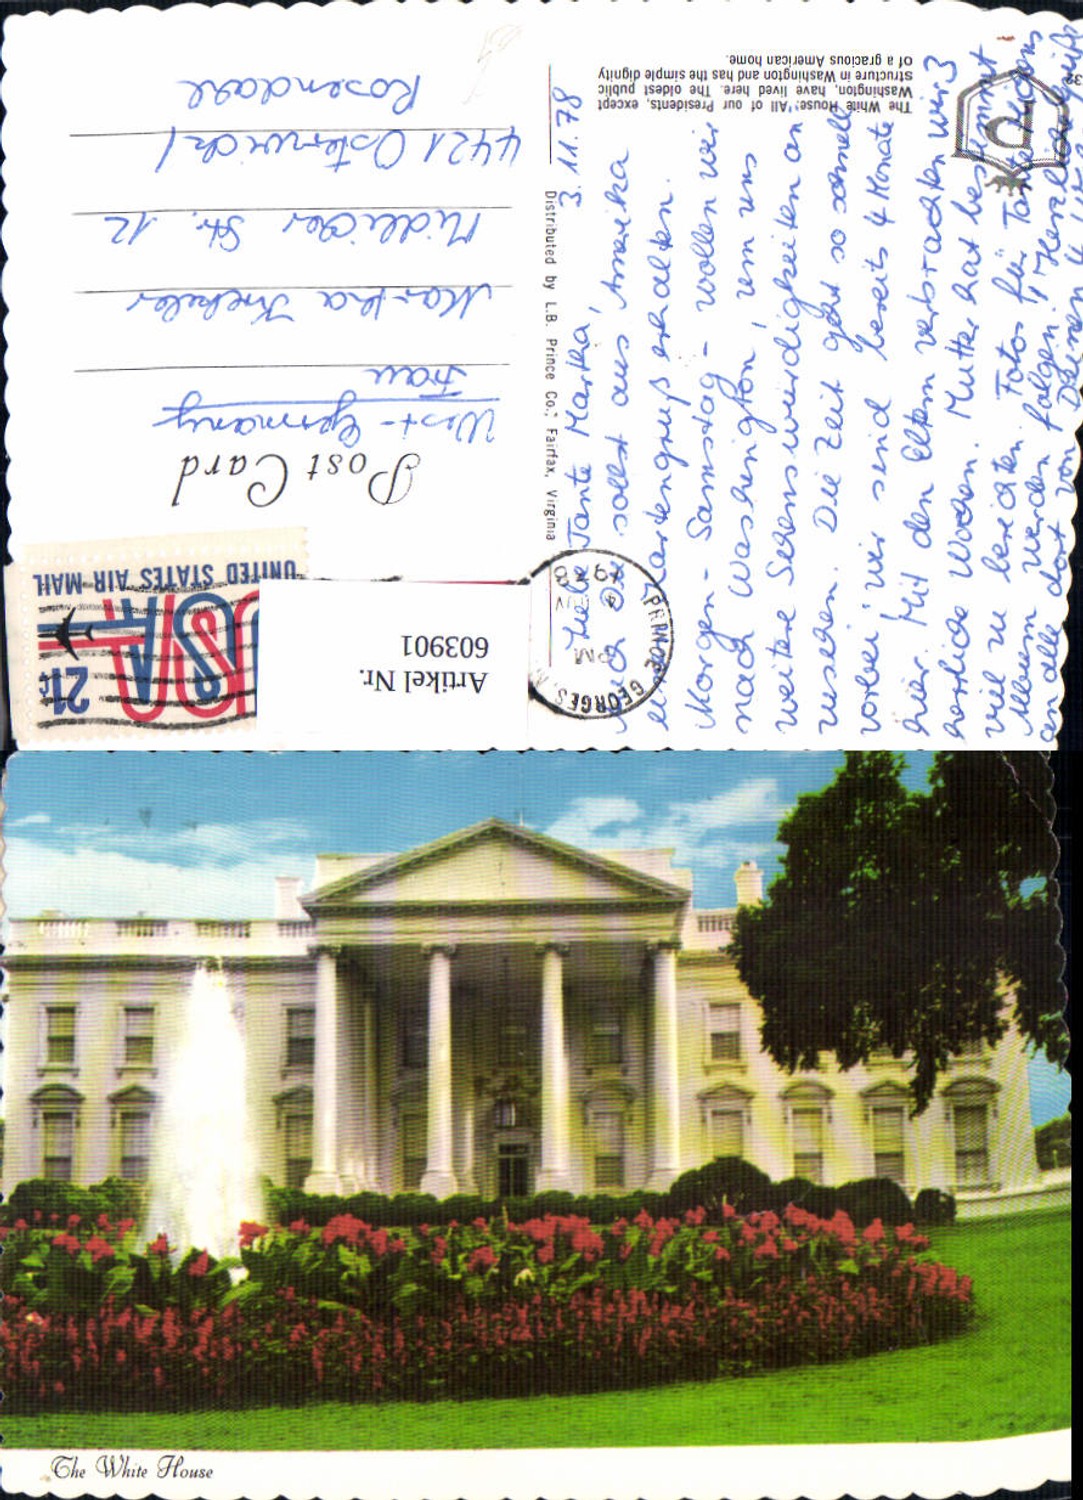 The White House. All of our Presidents, except
Washington, have lived here. The oldest public
structure in Washington and has the simple dignity
of a gracious American home.
3.11.78
Liebe Tante Martha,
Auch Du sollst aus Amerika
einen Kartengruß erhalten.
Morgen - Samstag - wollen wir
nach Washington, um uns
weitere Sehenswürdigkeiten an
zusehen. Die Zeit geht so schnell
vorbei, wir sind bereits 4 Monate
hier. Mit den Eltern verbrachten wir 3
herrliche Wochen. Mutter hat bestimmt
viel zu berichten. Fotos für Tante
Album werden folgen. Herzliche Grüße
an alle dort von Deinen
Distributed by L.B. Prince Co., Fairfax, Virginia
Post Card
West-Germany
Frau
Martha
Midlicher Str. 12
4421 Osterwick/
Rosendahl
UNITED STATES AIR MAIL
21¢
USA
PRINCE GEORGES, M
PM
4 NOV
1978
Artikel Nr.
603901
32
The White House